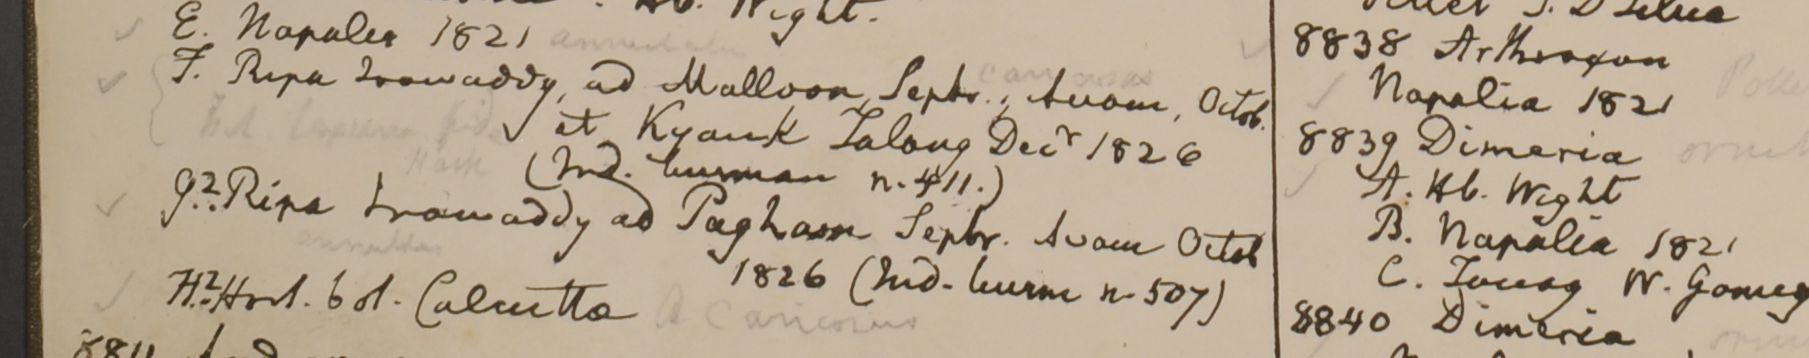 Hb. Wight.
E. Napalia 1821
F. Ripa Irawaddy, ad Malloon, Septr., Avam, Octob.
et Kyauk Talong Decr 1826
(Ind. burman n. 411.)
G? Ripa Irawaddy ad Pagham Septr. Avam Octob
1826 (Ind. burm n. 507)
H? Hort. bot. Calcutta
8811
8838 Arthraxon
Napalia 1821
8839 Dimeria
A. Hb. Wight
B. Napalia 1821
C. Tavoy W. Gomez
8840 Dimeria